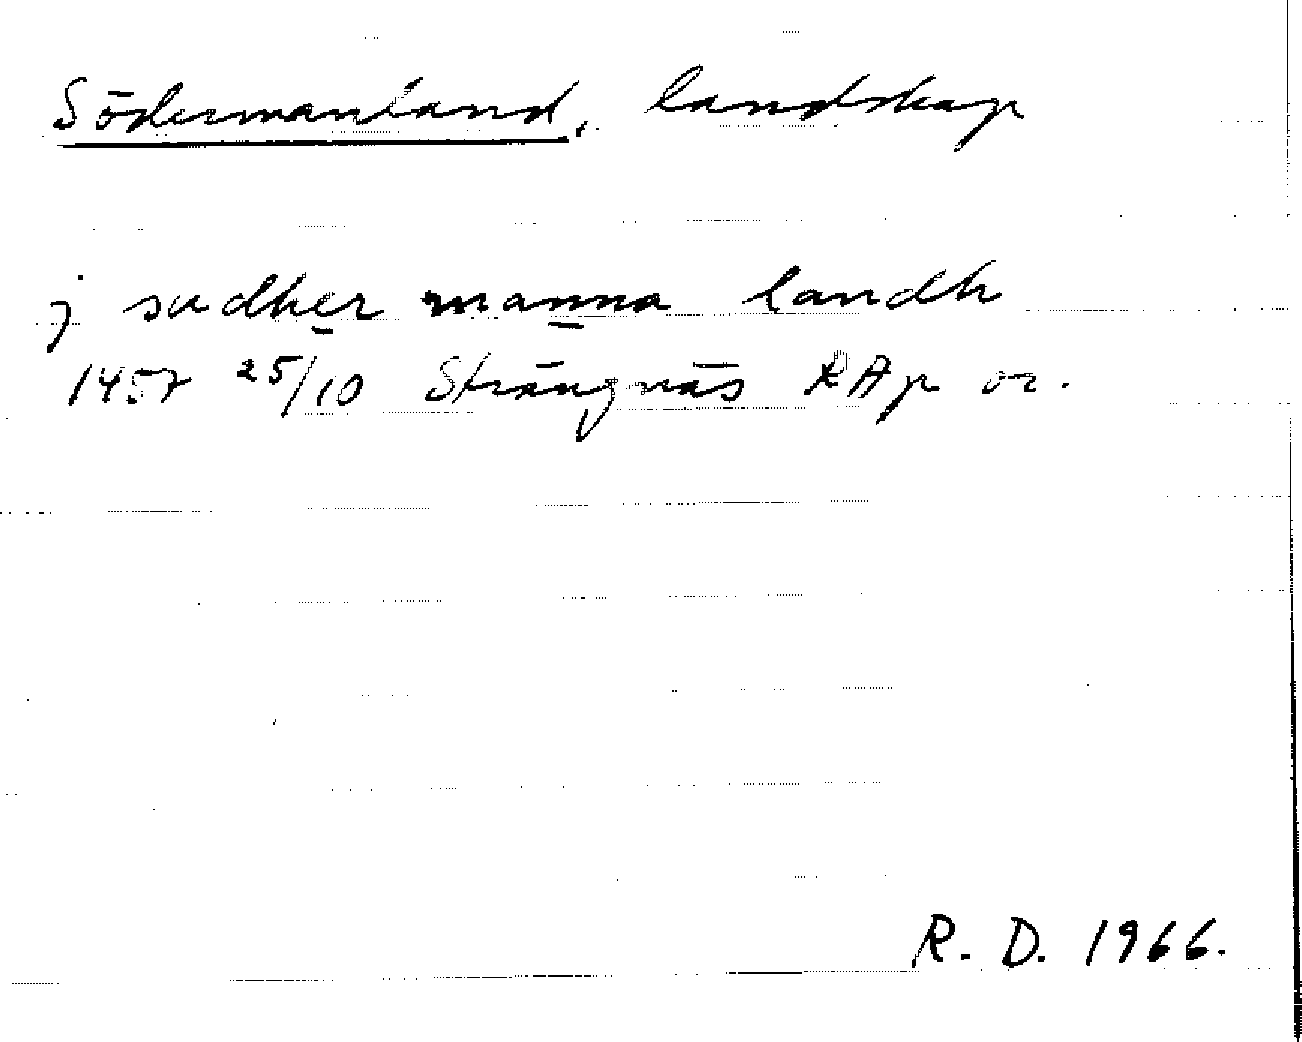 Södermanland, landskap
j sudher manna landh
1457 25/10 Strängnäs RAp or.
R. D. 1966.